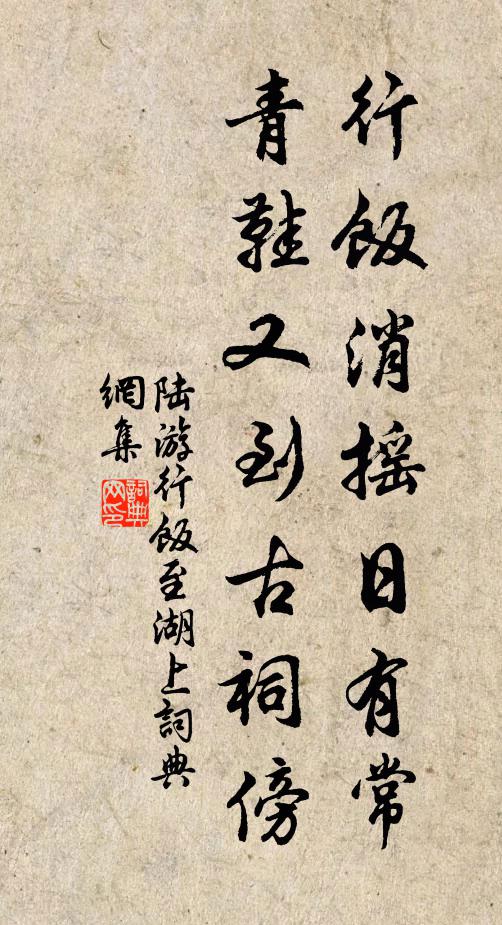 行飯消摇日有常
青鞵又到古祠傍
陆游行飯至湖上詞典
網集
詞典
网印